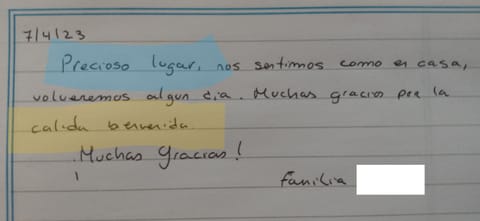 7/4/23
Precioso lugar, nos sentimos como en casa,
volveremos algun dia. Muchas gracias por la
calida bienvenida
Muchas Gracias!
familia